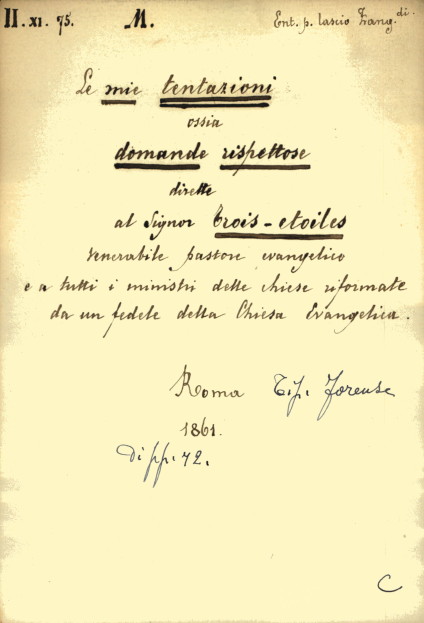 II. XI. 75. M. Ent. p. lascio Zang.di
Le mie tentazioni
ossia
domande rispettose
dirette
al Signor Trois-etoiles
venerabile pastore evangelico
e a tutti i ministri delle chiese riformate
da un fedele della Chiesa Evangelica.
Roma Tip. Forense
1861.
di pp. 72.
C